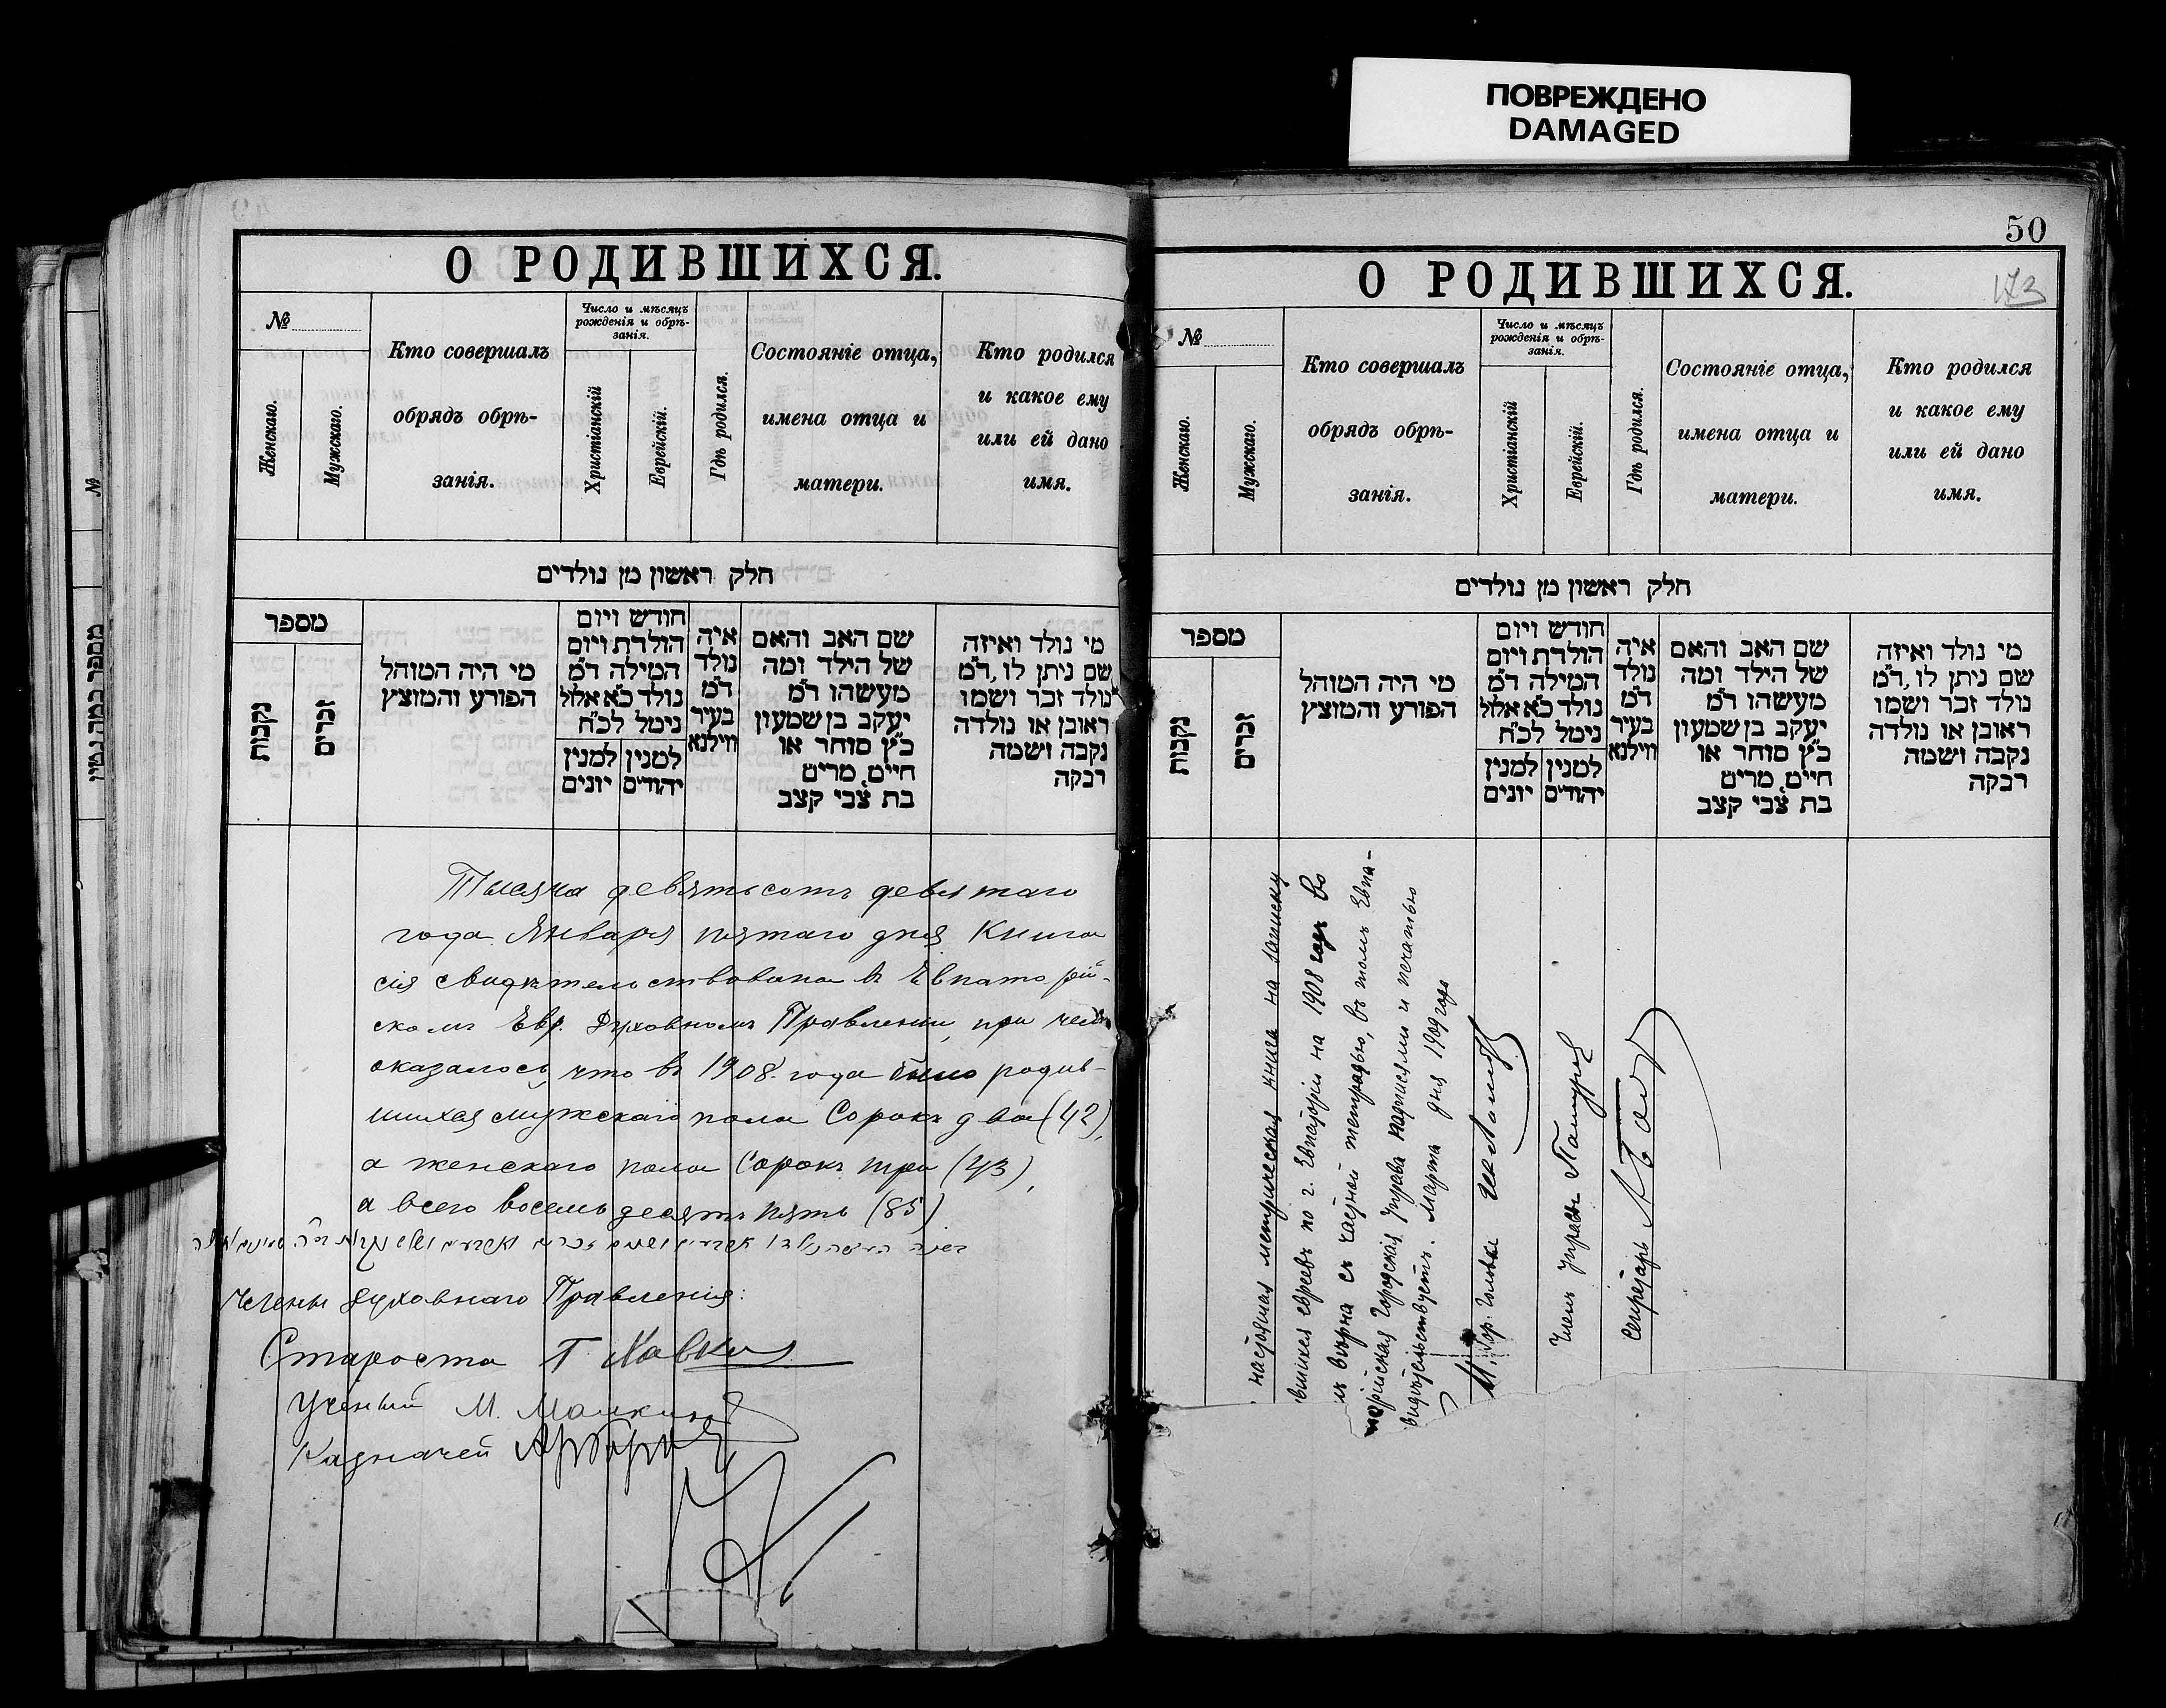 ПОВРЕЖДЕНО
DAMAGED
О РОДИВШИХСЯ.
№
Женскаго.
Мужскаго.
Кто совершалъ
обрядъ обрѣ-
занія.
Число и мѣсяцъ
рожденія и обрѣ-
занія.
Христіанскій
Еврейскій.
Гдѣ родился.
Состояніе отца,
имена отца и
матери.
Кто родился
и какое ему
или ей дано
имя.
חלק ראשון מן נולדים
מספר
נקבות
זכרים
מי היה המוהל
הפורע והמוצץ
חודש ויום
הולדת ויום
המילה ד״מ
נולד כ״א אלול
נימל לכ״ח
למנין יונים
למנין יהודים
איה
נולד
ד״מ
בעיר
ווילנא
שם האב והאם
של הילד ומה
מעשהו ד״מ
יעקב בן שמעון
כ״ץ סוחר או
חיים, מרים
בת צבי קצב
מי נולד ואיזה
שם ניתן לו, ד״מ
נולד זכר ושמו
ראובן או נולדה
נקבה ושמה
רבקה
Тысяча девятьсотъ девятаго
года Января пятаго дня Книга
сія свидѣтельствована въ Евпаторій-
скомъ Евр. Духовномъ Правленіи, при чемъ
оказалось, что въ 1908 года было родив-
шихся мужскаго пола Сорокъ два (42),
а женскаго пола Сорокъ три (43),
а всего восемьдесятъ пять (85)
Члены Духовнаго Правленія:
Староста Г. Хавкин
Ученый М.
Казначей
50
173
О РОДИВШИХСЯ.
№
Женскаго.
Мужскаго.
Кто совершалъ
обрядъ обрѣ-
занія.
Число и мѣсяцъ
рожденія и обрѣ-
занія.
Христіанскій
Еврейскій.
Гдѣ родился.
Состояніе отца,
имена отца и
матери.
Кто родился
и какое ему
или ей дано
имя.
חלק ראשון מן נולדים
מספר
נקבות
זכרים
מי היה המוהל
הפורע והמוצץ
חודש ויום
הולדת ויום
המילה ד״מ
נולד כ״א אלול
נימל לכ״ח
למנין יונים
למנין יהודים
איה
נולד
ד״מ
בעיר
ווילנא
שם האב והאם
של הילד ומה
מעשהו ד״מ
יעקב בן שמעון
כ״ץ סוחר או
חיים, מרים
בת צבי קצב
מי נולד ואיזה
שם ניתן לו, ד״מ
נולד זכר ושמו
ראובן או נולדה
נקבה ושמה
רבקה
настоящая метрическая книга на записку
вшихся евреевъ по г. Евпаторіи на 1908 годъ во
вѣрна съ частной тетрадью, въ томъ Евпа-
торійская Городская Управа надписями и печатью
видѣтельствуетъ. Марта дня 1909 года
Гор. Голова
Членъ Управы
Секретарь